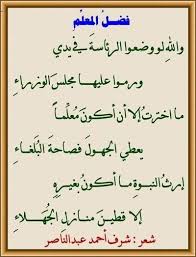 فضلُ المعلِّم
واللهِ لو وضعوا الرئاسةَ في يدي
ورموا عليها مجلسَ الوزراءِ
ما اخترتُ إلا أن أكونَ معلِّماً
يعطي الجهولَ فصاحةَ البلغاءِ
إرثُ النبوةِ ما أكونُ بغيرهِ
إلا قطينَ منازلِ الجُهلاءِ
شعر : شرف أحمد عبدالناصر